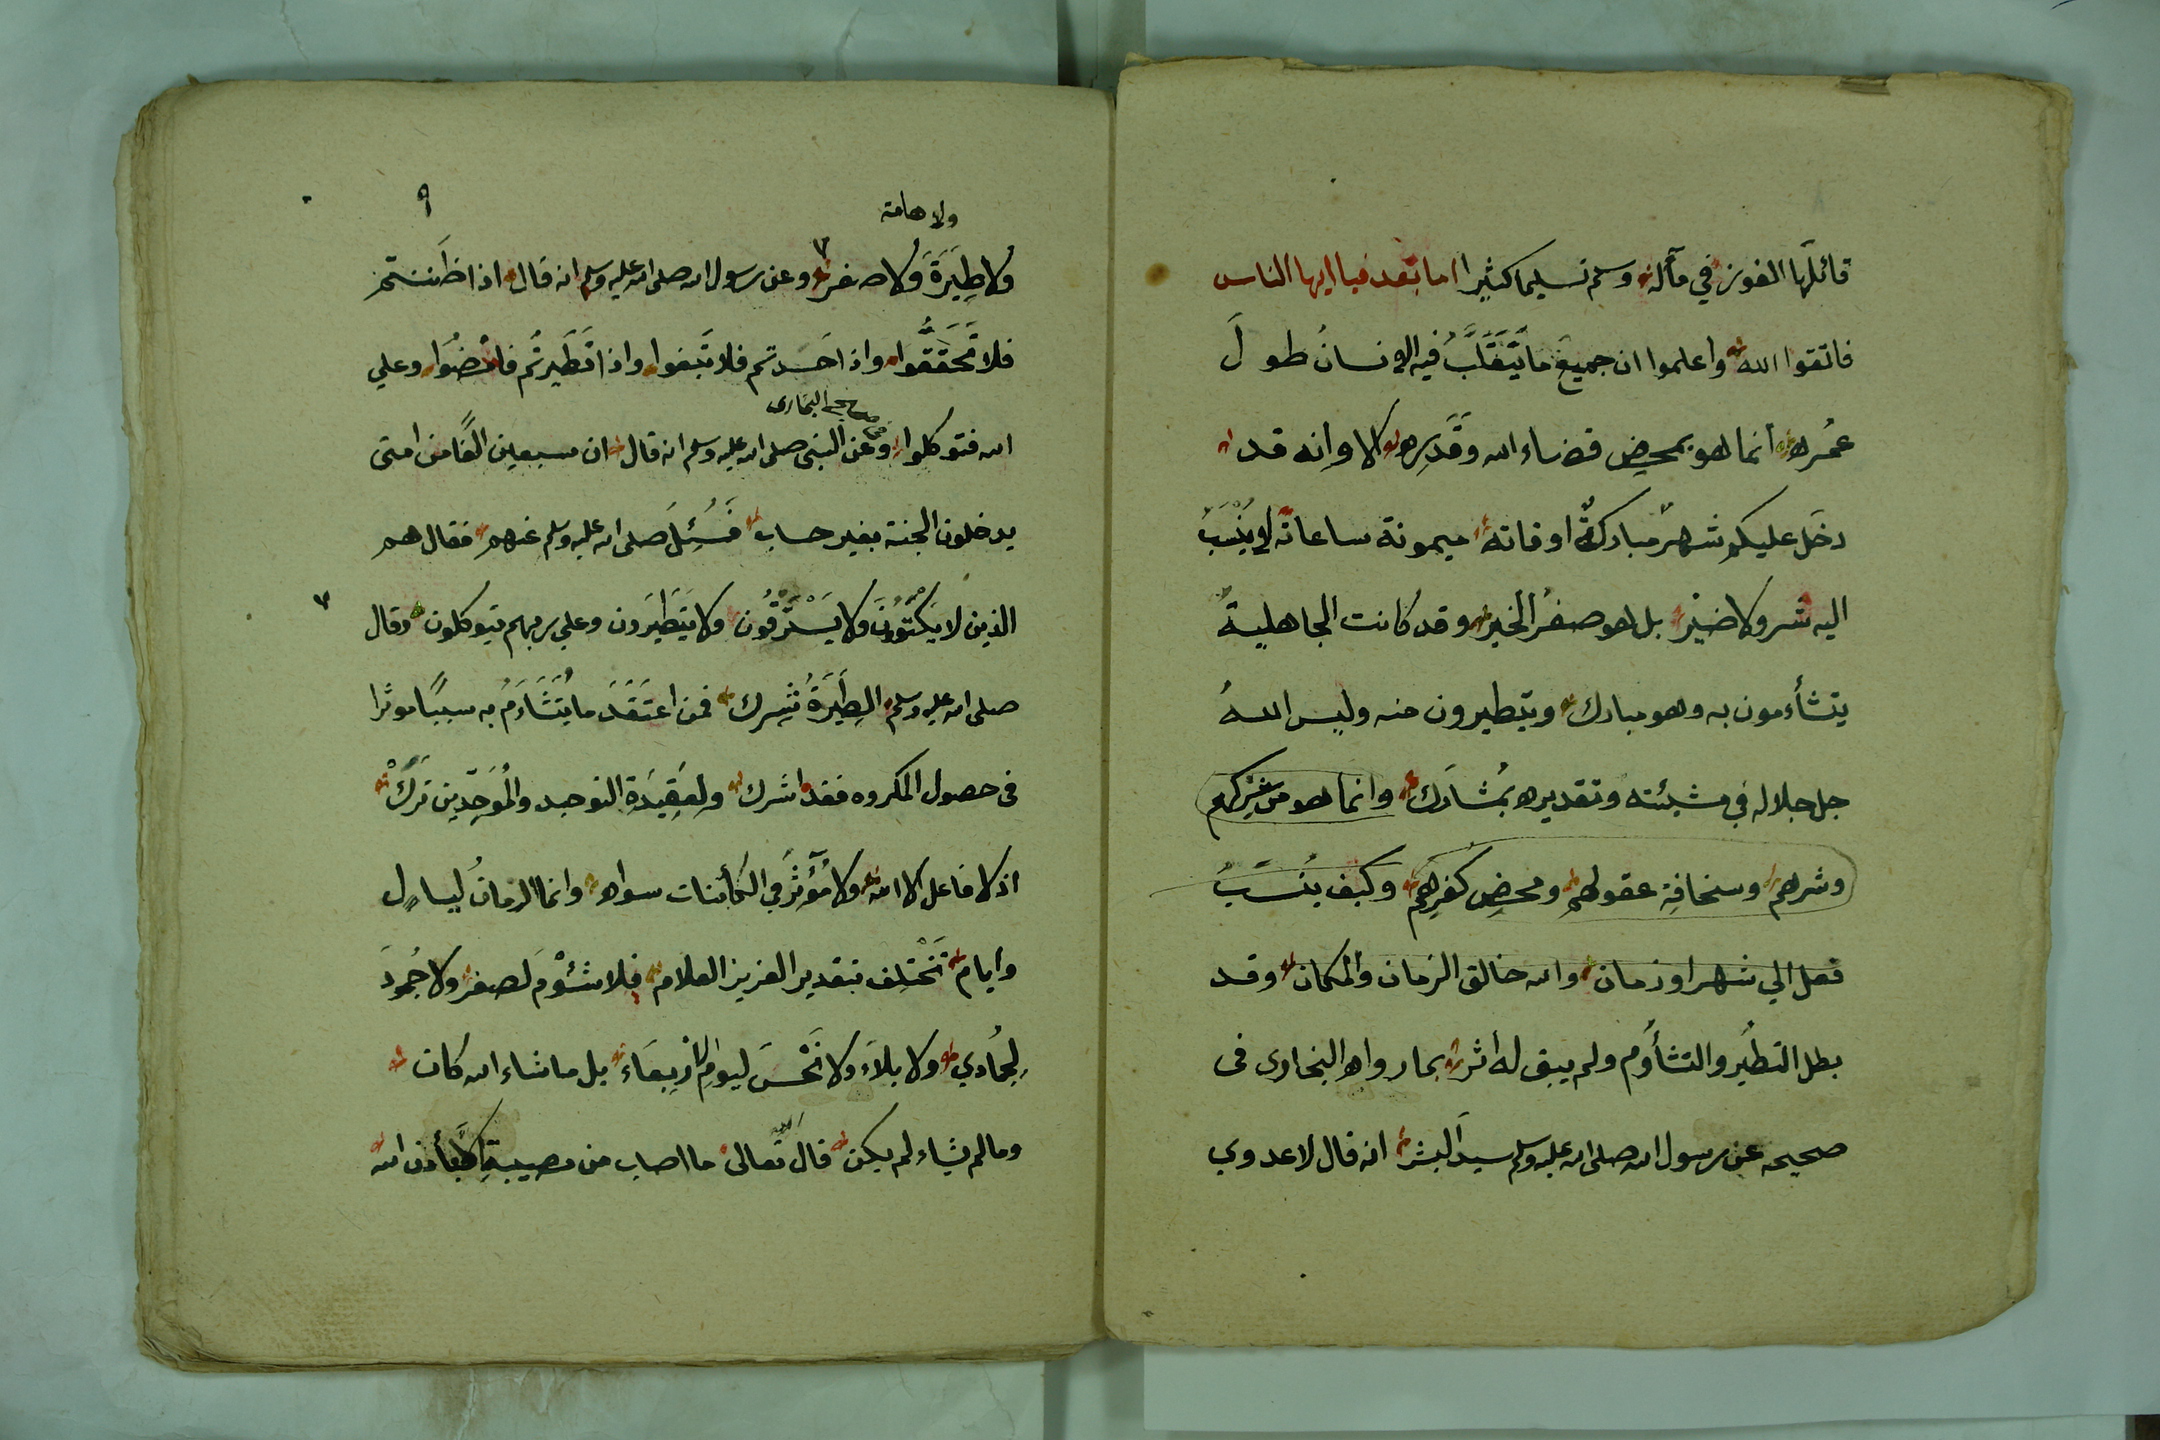 قائلَها الفوز في مآله وسلم تسليما كثيرا اما بعد فيا ايها الناس
فاتقوا الله واعلموا ان جميع ما يَتَقَلَّبُ فيه الانسانُ طولَ
عمُره انما هو بمحض قضاء الله وقَدَره الا وانه قد
دخَل عليكم شهرٌ مباركةٌ اوقاته ميمونة ساعاته لا يُنْسَبُ
اليه شر ولا ضَيْر بل هو صفرُ الخير وقد كانت الجاهلية
يتشأءمون به وهو مبارك ويتطيرون منه وليس اللهُ
جل جلاله في مشيئته وتقديره بمُشارَك وانما هو من شركهم
وشرهم وسخافة عقولهم ومحض كفرهم وكيف يُنسَبُ
فعل الي شهر او زمان والله خالق الزمان والمكان وقد
بطل التطيُر والتشأوم ولم يبق له اثر بما رواه البخارى فى
صحيحه عن رسول الله صلى الله عليه وسلم سيد البشر انه قال لا عدوي
٩
ولا هامة
ولا طِيَرَةَ ولا صفر وعن رسول الله صلى الله عليه وسلم انه قال اذا ظَننتم
فلا تَحَقَّقُوا واذا حَسدتم فلا تَبغوا واذا تَطَيرتُم فامْضُوا وعلي
صحيح البخارى
الله فتوكلوا وعن النبى صلى الله عليه وسلم انه قال ان سبعين الفًا من امتى
يدخلون الجنة بغير حساب فَسُئِلَ صلى الله عليه وسلم عنهم فقال هم
الذين لا يَكْتَوُونَ ولا يَسْتَرْقُون ولا يَتَطَيرَون وعلي ربهم يتوكلون وقال
صلى الله عليه وسلم الطِيَرَةُ شِرك فمن اعتَقَدَ ما يُتَشَاءَمُ به سببًا موثرا
فى حصول المكروه فقد اشرك ولِعَقِيدَة التوحيد والمُوَحِّدِين تَرَكْ
اذ لا فاعل الا الله ولا مُؤَثِّرَ في الكأئنات سواه وانما الزمانُ ليا ل
وايام تَخْتلِف بتقدير العزيز العلام فلا شُؤْمَ لصفر ولا جُمودَ
لِجُمادي ولا بلاَءَ ولا نَحْسَ ليوم الاَرْبِعَاء بل ما شاء الله كان
وما لم يشاء لم يكن قال تعالى ما اصاب من مصيبةٍ الا بأذن الله